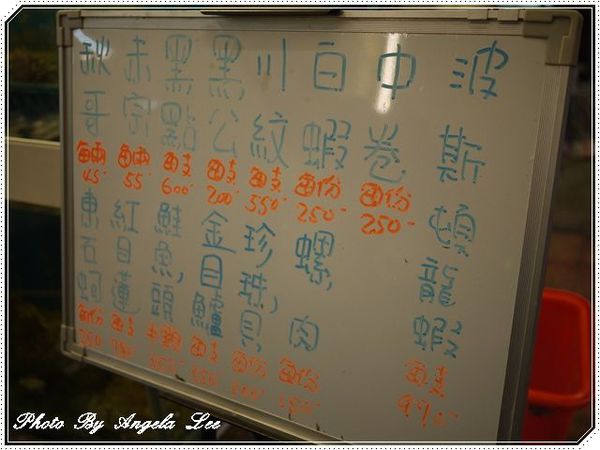 波斯頓龍蝦
每隻
990-
中卷
每份
250-
白蝦
每份
250-
螺肉
每份
川紋
每支
550-
珍珠貝
每份
黑公
每支
200-
金目鱸
每支
黑點
每支
600-
鮭魚頭
半顆
赤宗
每兩
55-
紅目蓮
每支
秋哥
每兩
45-
東石蚵
每份
Photo By Angela Lee